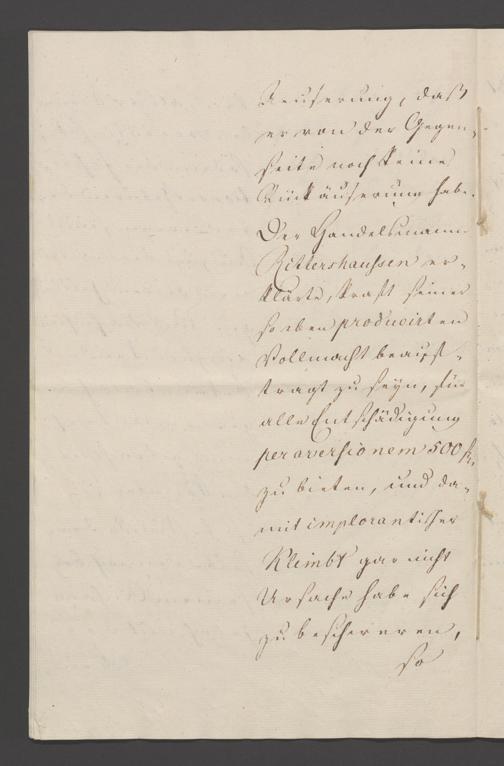 Aeuserung, daß
er von der Gegen-
seite noch keine
Rückäuserung habe.
Der Handelsmann
Rittershaussen er-
klärte, kraft seiner
so eben producirten
Vollmacht beauf-
tragt zu seyn, für
alle Entschädigung
per aversionem 500 fl.
zu bieten, und da-
mit implorantischer
Klimbt gar nicht
Ursache habe sich
zu beschweren,
so